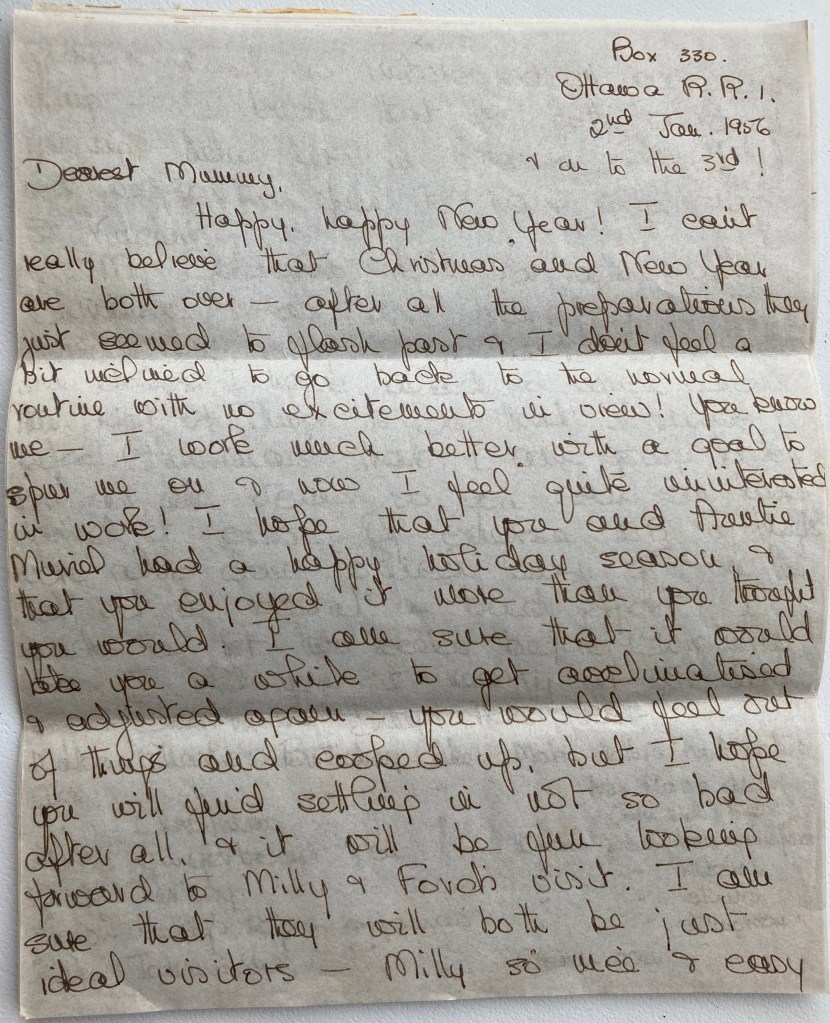 Box 330.
Ottawa R.R.1.
2nd Jan. 1956
& on to the 3rd!
Dearest Mummy,
Happy, happy New Year! I can't
really believe that Christmas and New Year
are both over — after all the preparations they
just seemed to flash past & I don't feel a
bit inclined to go back to the normal
routine with no excitements in view! You know
me — I work much better with a goal to
spur me on & now I feel quite uninterested
in work! I hope that you and Auntie
Muriel had a happy holiday season, &
that you enjoyed it more than you thought
you would. I am sure that it would
take you a while to get acclimatised
& adjusted again — you would feel out
of things and cooped up, but I hope
you will find settling in not so bad
after all, & it will be fun looking
forward to Milly & visit. I am
sure that they will both be just
ideal visitors — Milly so nice & easy